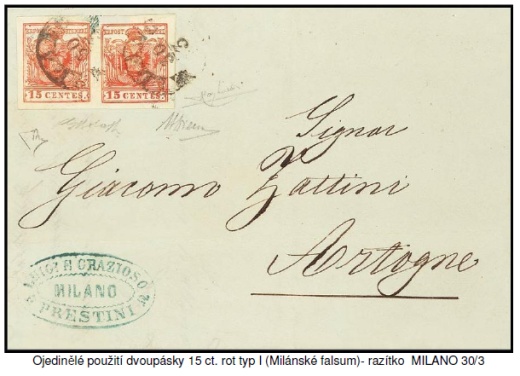 15 CENTES 15 CENTES
Signor
Giacomo Zattini
Artogne
LUIGI A GRAZIOSO
MILANO
PRESTINI
Ojedinělé použití dvoupásky 15 ct. rot typ I (Milánské falsum)- razítko MILANO 30/3